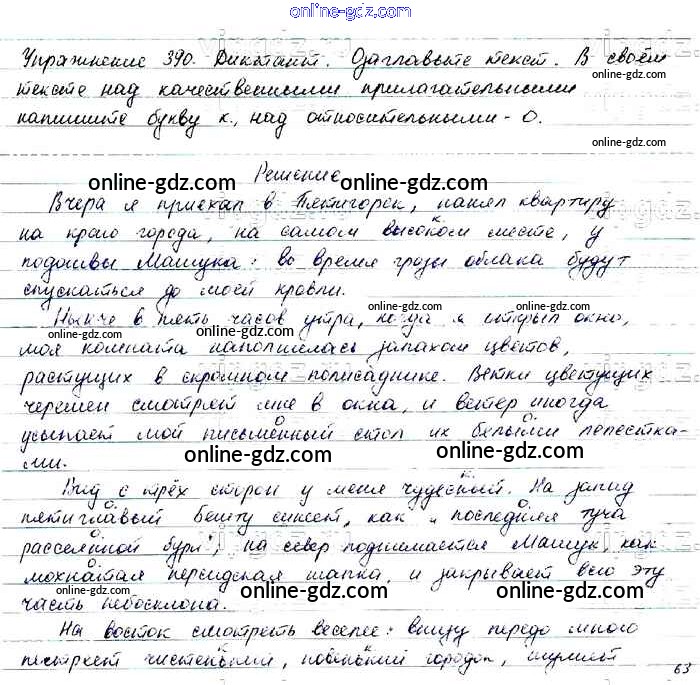 online-gdz.com
Упражнение 390. Диктант. Озаглавьте текст. В своём
online-gdz.com
тексте над качественными прилагательными
напишите букву к., над относительными - о.
online-gdz.com
Решение
online-gdz.com
Вчера я приехал в Пятигорск, нанял квартиру
на краю города, на самом высоком месте, у
подошвы Машука: во время грозы облака будут
online-gdz.com
спускаться до моей кровли.
online-gdz.com
Нынче в пять часов утра, когда я открыл окно,
online-gdz.com
моя комната наполнилась запахом цветов,
растущих в скромном полисаднике. Ветки цветущих
черешен смотрят мне в окна, и ветер иногда
усыпает мой письменный стол их белыми лепестка-
ми.
online-gdz.com
Вид с трёх сторон у меня чудесный. На запад
пятиглавый Бешту синеет, как "последняя туча
рассеянной бури"; на север поднимается Машук, как
мохнатая персидская шапка, и закрывает всю эту
часть небосклона.
online-gdz.com
На восток смотреть веселее: внизу передо мною
пестреет чистенький, новенький городок, шумят
63
online-gdz.com